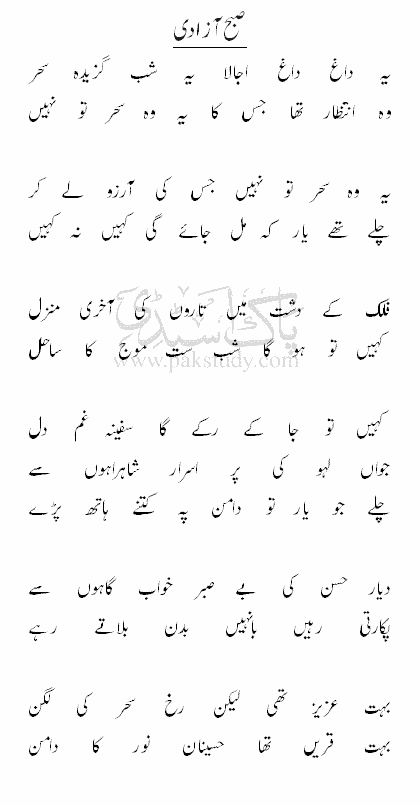 صبح آزادی
یہ داغ داغ اجالا یہ شب گزیدہ سحر
وہ انتظار تھا جس کا یہ وہ سحر تو نہیں
یہ وہ سحر تو نہیں جس کی آرزو لے کر
چلے تھے یار کہ مل جائے گی کہیں نہ کہیں
فلک کے دشت میں تاروں کی آخری منزل
کہیں تو ہو گا شب ست موج کا ساحل
پاک سٹڈی
www.pakstudy.com
کہیں تو جا کے رکے گا سفینہ غم دل
جواں لہو کی پر اسرار شاہراہوں سے
چلے جو یار تو دامن پہ کتنے ہاتھ پڑے
دیار حسن کی بے صبر خواب گاہوں سے
پکارتی رہیں بانہیں بدن بلاتے رہے
بہت عزیز تھی لیکن رخ سحر کی لگن
بہت قریں تھا حسینان نور کا دامن